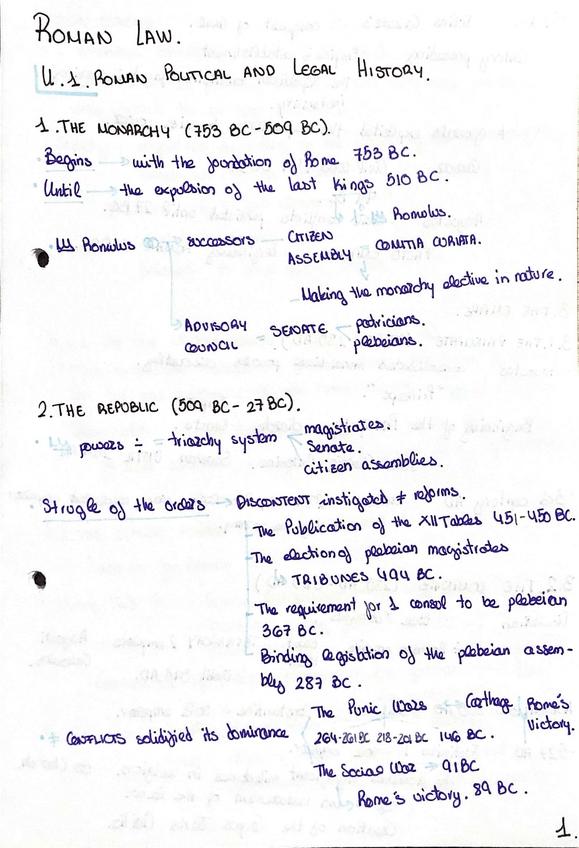 ROMAN LAW.
U.1. ROMAN POLITICAL AND LEGAL HISTORY.
1. THE MONARCHY (753 BC-509 BC).
Begins → with the foundation of Rome 753 BC.
Until → the expulsion of the last Kings 510 BC.
Romulus.
Romulus SUCCESSORS — CITIZEN ASSEMBLY COMITIA CURIATA.
Making the monarchy elective in nature.
ADVISORY COUNCIL SENATE patricians.
plebeians.
2. THE REPUBLIC (509 BC - 27 BC).
powers ÷ = triarchy system magistrates.
Senate.
citizen assemblies.
Strugle of the orders → DISCONTENT instigated ≠ reforms.
The Publication of the XII Tables 451-450 BC.
The election of plebeian magistrates
TRIBUNES 494 BC.
The requirement for 1 consol to be plebeian
367 BC.
Binding legislation of the plebeian assem-
bly 287 BC.
≠ CONFLICTS solidified its dominance The Punic Wars Carthage Rome's victory.
264-261BC 218-201BC 146 BC.
The Social War → 91BC
Rome's victory. 89 BC.
1.